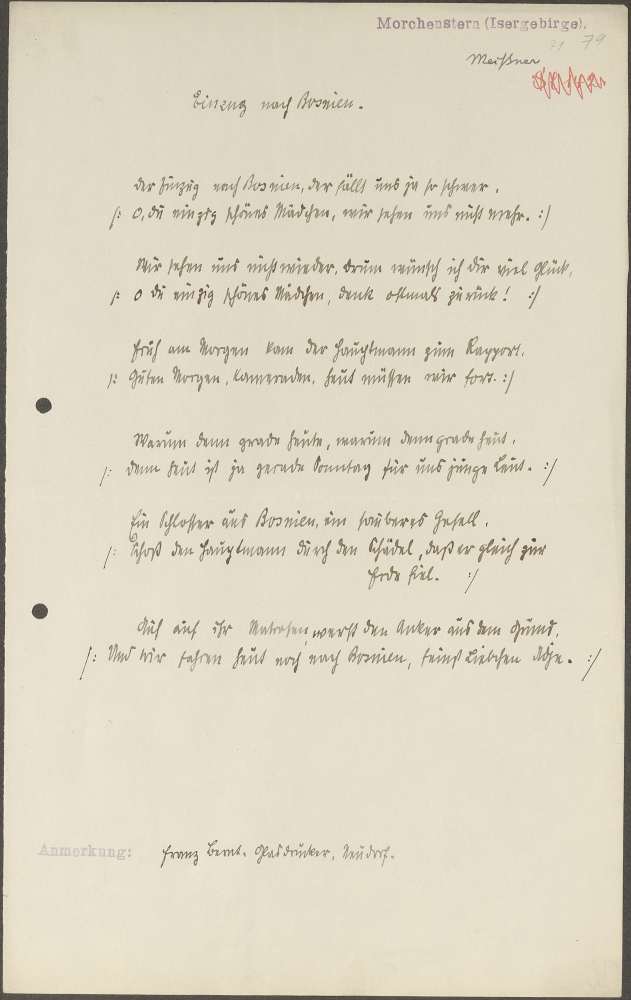 Morchenstern (Isergebirge).
79
Meißner
Einzug nach Bosnien.
Der Einzug nach Bosnien, der fällt uns ja so schwer.
/: O, du einzig schönes Mädchen, wir sehen uns nicht mehr. :/
Wir sehen uns nicht wieder, drum wünsch ich dir viel Glück,
/: O du einzig schönes Mädchen, denk oftmals zurück! :/
Früh am Morgen kam der Hauptmann zum Rapport.
/: Guten Morgen, Kameraden, heut müssen wir fort. :/
Warum denn grade heute, warum denn grade heut,
/: denn heut ist ja gerade Sonntag für uns junge Leut. :/
Ein Schlosser aus Bosnien, ein sauberes Gesell,
/: Schoß den Hauptmann durch den Schädel, daß er gleich zur
Erde fiel. :/
Auf auf ihr Matrosen, werft den Anker aus dem Grund,
/: Und wir fahren heut noch nach Bosnien, feinst Liebchen Adje. :/
Anmerkung: Franz Bernt, Glasdrücker, Neudorf.